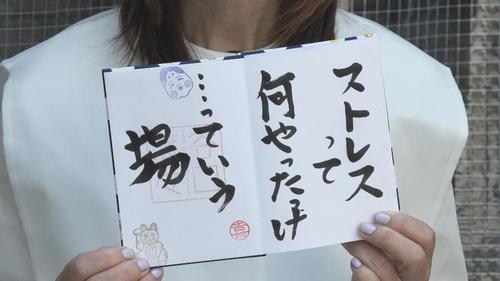 ストレス
って
何やったけ
…っていう
場